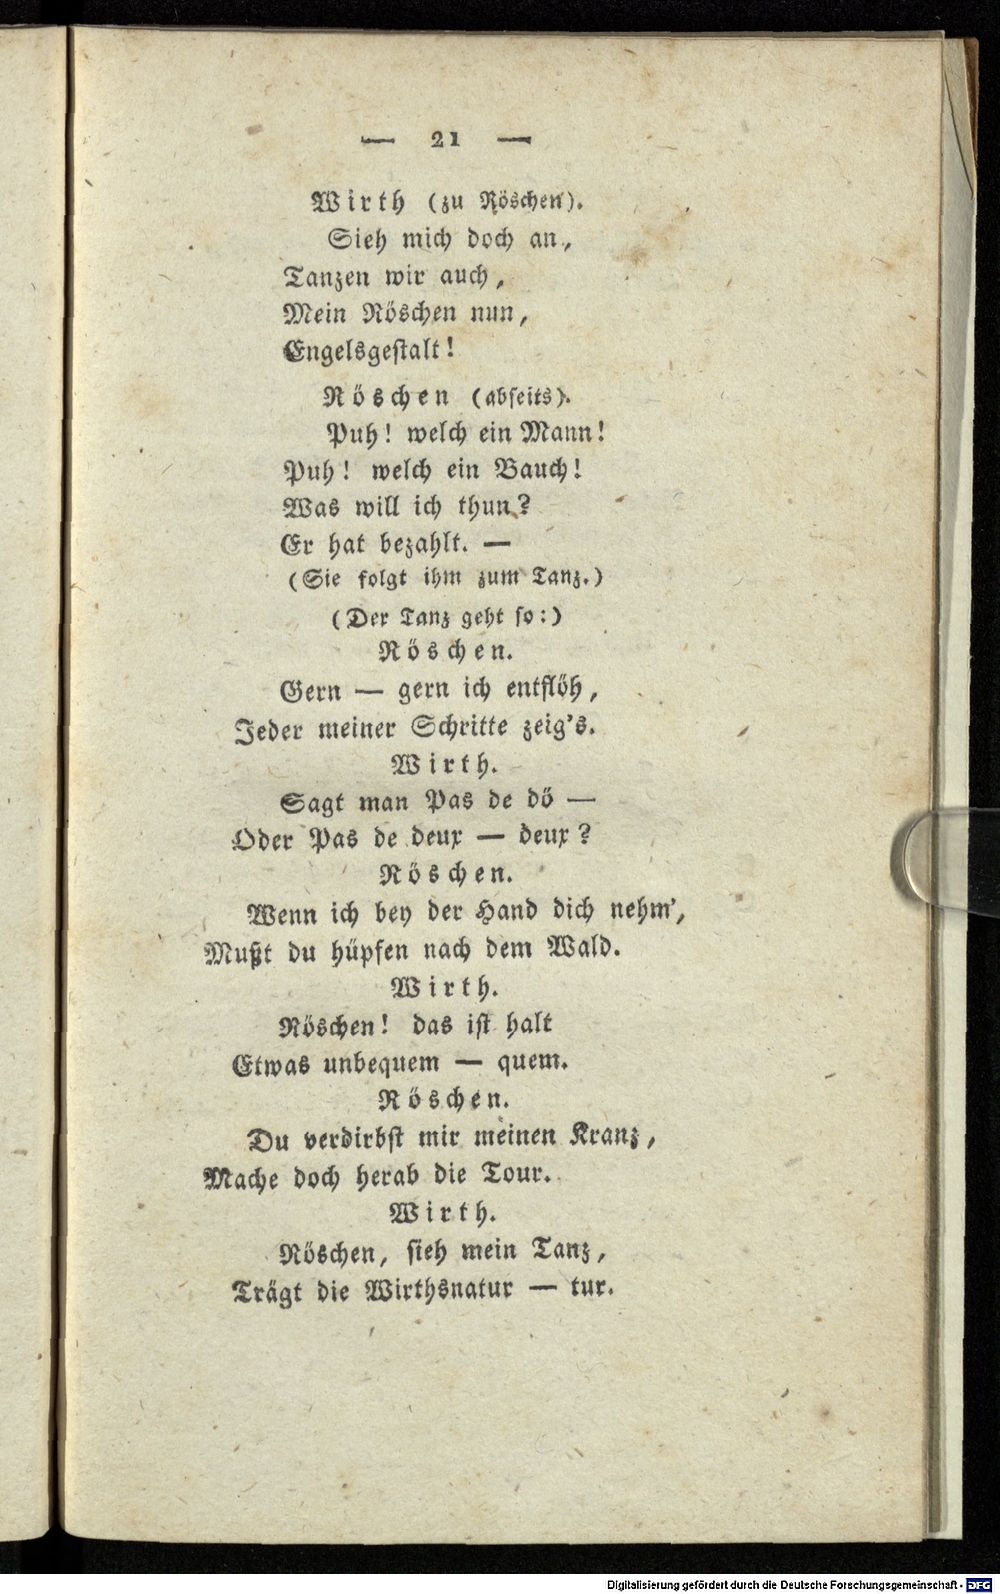 — 21 —
Wirth (zu Röschen).
Sieh mich doch an,
Tanzen wir auch,
Mein Röschen nun,
Engelsgestalt!
Röschen (abseits).
Puh! welch ein Mann!
Puh! welch ein Bauch!
Was will ich thun?
Er hat bezahlt. —
(Sie folgt ihm zum Tanz.)
(Der Tanz geht so:)
Röschen.
Gern — gern ich entflöh,
Jeder meiner Schritte zeig's.
Wirth.
Sagt man Pas de dö —
Oder Pas de deux — deux?
Röschen.
Wenn ich bey der Hand dich nehm',
Mußt du hüpfen nach dem Wald.
Wirth.
Röschen! das ist halt
Etwas unbequem — quem.
Röschen.
Du verdirbst mir meinen Kranz,
Mache doch herab die Tour.
Wirth.
Röschen, sieh mein Tanz,
Trägt die Wirthsnatur — tur.
Digitalisierung gefördert durch die Deutsche Forschungsgemeinschaft - DFG